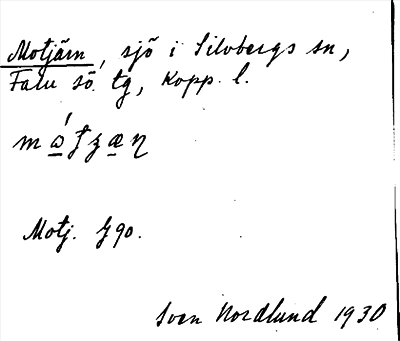 Motjärn, sjö i Silvbergs sn,
Falu sö. tg, Kopp. l.
Motj. G 90.
Sven Nordlund 1930